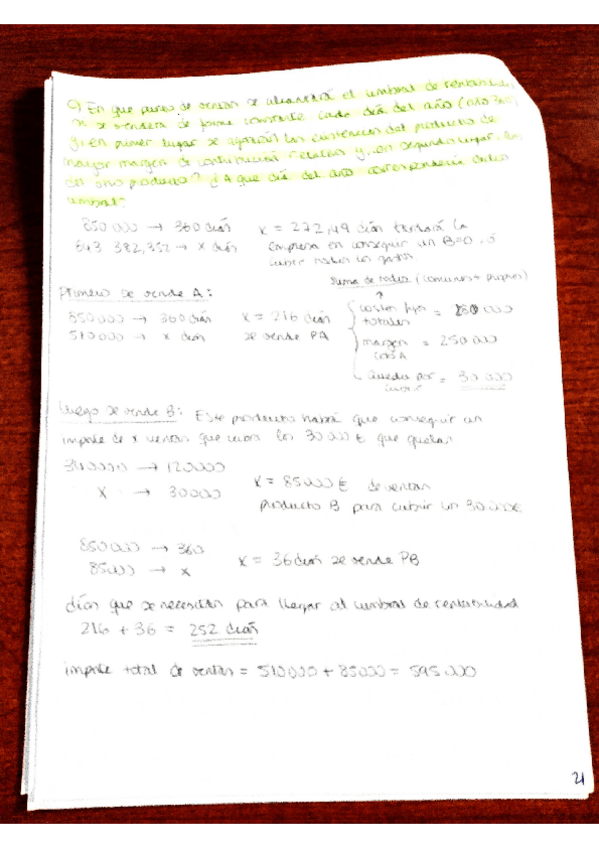 c) En que punto de ventas se alcanzará el umbral de rentabilidad
si se vendiera de forma constante cada día del año (año 360)
y, en primer lugar se agotarán las existencias del producto de
mayor margen de contribución relativo y, en segundo lugar, las
del otro producto? ¿A que día del año correspondería dicho
umbral?
850 000 → 360 días x = 272,49 días tardará la
643 382,352 → x días empresa en conseguir un B=0, ó
cubrir todos los gastos
suma de todos (comunes + propios)
Primero se vende A:
850 000 → 360 días x = 216 días costes fijos totales = 280 000
510 000 → x días se vende PA margen con A = 250 000
queda por cubrir = 30 000
Luego se vende B: Este producto habrá que conseguir un
importe de x ventas que cubra los 30 000 € que quedan
340 000 → 120 000
x → 30 000 x = 85 000 € de ventas
producto B para cubrir un 30.000€
850 000 → 360
85 000 → x x = 36 días se vende PB
días que se necesitan para llegar al umbral de rentabilidad
216 + 36 = 252 días
importe total de ventas = 510 000 + 85 000 = 595 000
21